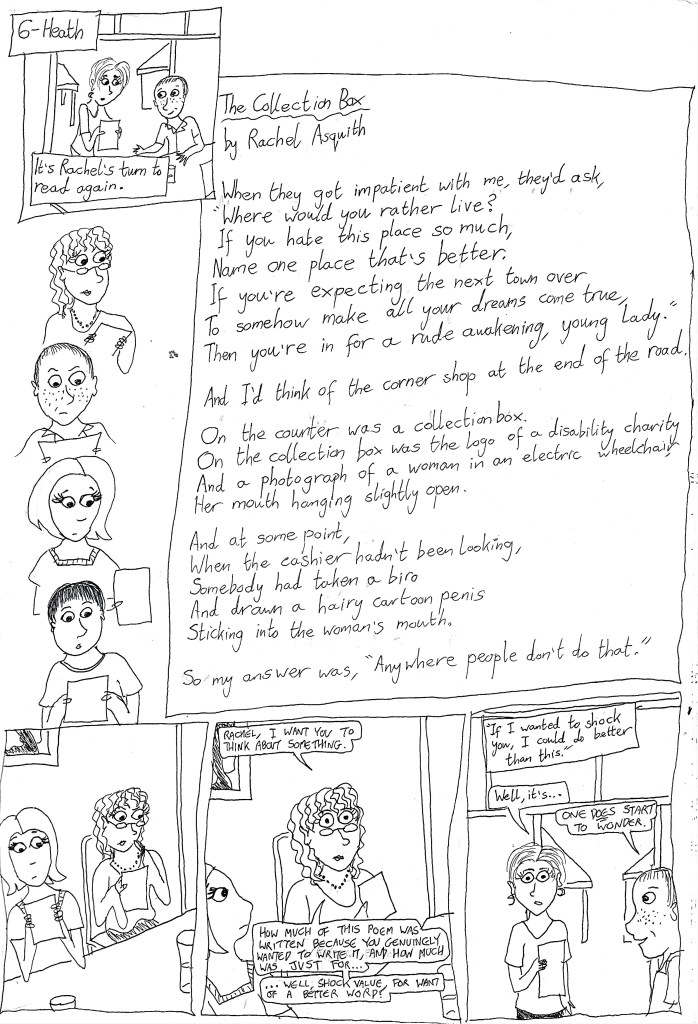 6-Heath
It's Rachel's turn to
read again.
The Collection Box
by Rachel Asquith
When they got impatient with me, they'd ask,
"Where would you rather live?
If you hate this place so much,
Name one place that's better.
If you're expecting the next town over
To somehow make all your dreams come true,
Then you're in for a rude awakening, young lady."
And I'd think of the corner shop at the end of the road.
On the counter was a collection box.
On the collection box was the logo of a disability charity
And a photograph of a woman in an electric wheelchair,
Her mouth hanging slightly open.
And at some point,
When the cashier hadn't been looking,
Somebody had taken a biro
And drawn a hairy cartoon penis
Sticking into the woman's mouth.
So my answer was, "Anywhere people don't do that."
RACHEL, I WANT YOU TO
THINK ABOUT SOMETHING.
HOW MUCH OF THIS POEM WAS
WRITTEN BECAUSE YOU GENUINELY
WANTED TO WRITE IT, AND HOW MUCH
WAS JUST FOR...
... WELL, SHOCK VALUE, FOR WANT
OF A BETTER WORD?
"If I wanted to shock
you, I could do better
than this."
Well, it's...
ONE DOES START
TO WONDER.